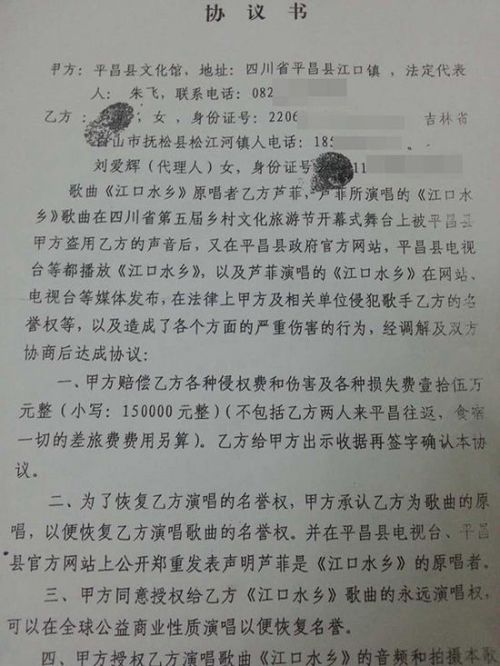 协议书
甲方：平昌县文化馆，地址：四川省平昌县江口镇，法定代表
人：朱飞，联系电话：082
乙方：，女，身份证号：2206 吉林省
山市抚松县松江河镇人电话：18
刘爱辉（代理人）女，身份证号 11
歌曲《江口水乡》原唱者乙方芦菲，芦菲所演唱的《江口水
乡》歌曲在四川省第五届乡村文化旅游节开幕式舞台上被平昌县
甲方盗用乙方的声音后，又在平昌县政府官方网站，平昌县电视
台等都播放《江口水乡》，以及芦菲演唱的《江口水乡》在网站、
电视台等媒体发布，在法律上甲方及相关单位侵犯歌手乙方的名
誉权等，以及造成了各个方面的严重伤害的行为，经调解及双方
协商后达成协议：
一、甲方赔偿乙方各种侵权费和伤害及各种损失费壹拾伍万
元整（小写：150000元整）（不包括乙方两人来平昌往返，食宿
一切的差旅费费用另算）。乙方给甲方出示收据再签字确认本协
议。
二、为了恢复乙方演唱的名誉权，甲方承认乙方为歌曲的原
唱，以便恢复乙方演唱歌曲的名誉权。并在平昌县电视台、平昌
县官方网站上公开郑重发表声明芦菲是《江口水乡》的原唱者。
三、甲方同意授权给乙方《江口水乡》歌曲的永远演唱权，
可以在全球公益商业性质演唱以便恢复名誉。
四、甲方授权乙方演唱《江口水乡》的音频和拍摄本歌